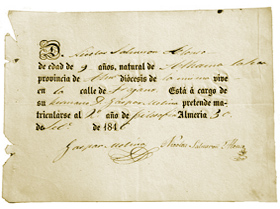 D. Nicolas Salmeron Alonso
de edad de 9 años, natural de Alhama la Seca
provincia de diócesis de la misma vive
en la calle de Está á cargo de
su hermano D. Gaspar Molina pretende ma-
tricularse al 2º año de filosofia Almeria 30
de Set.e de 184
Gaspar Molina Nicolas Salmeron Alonso